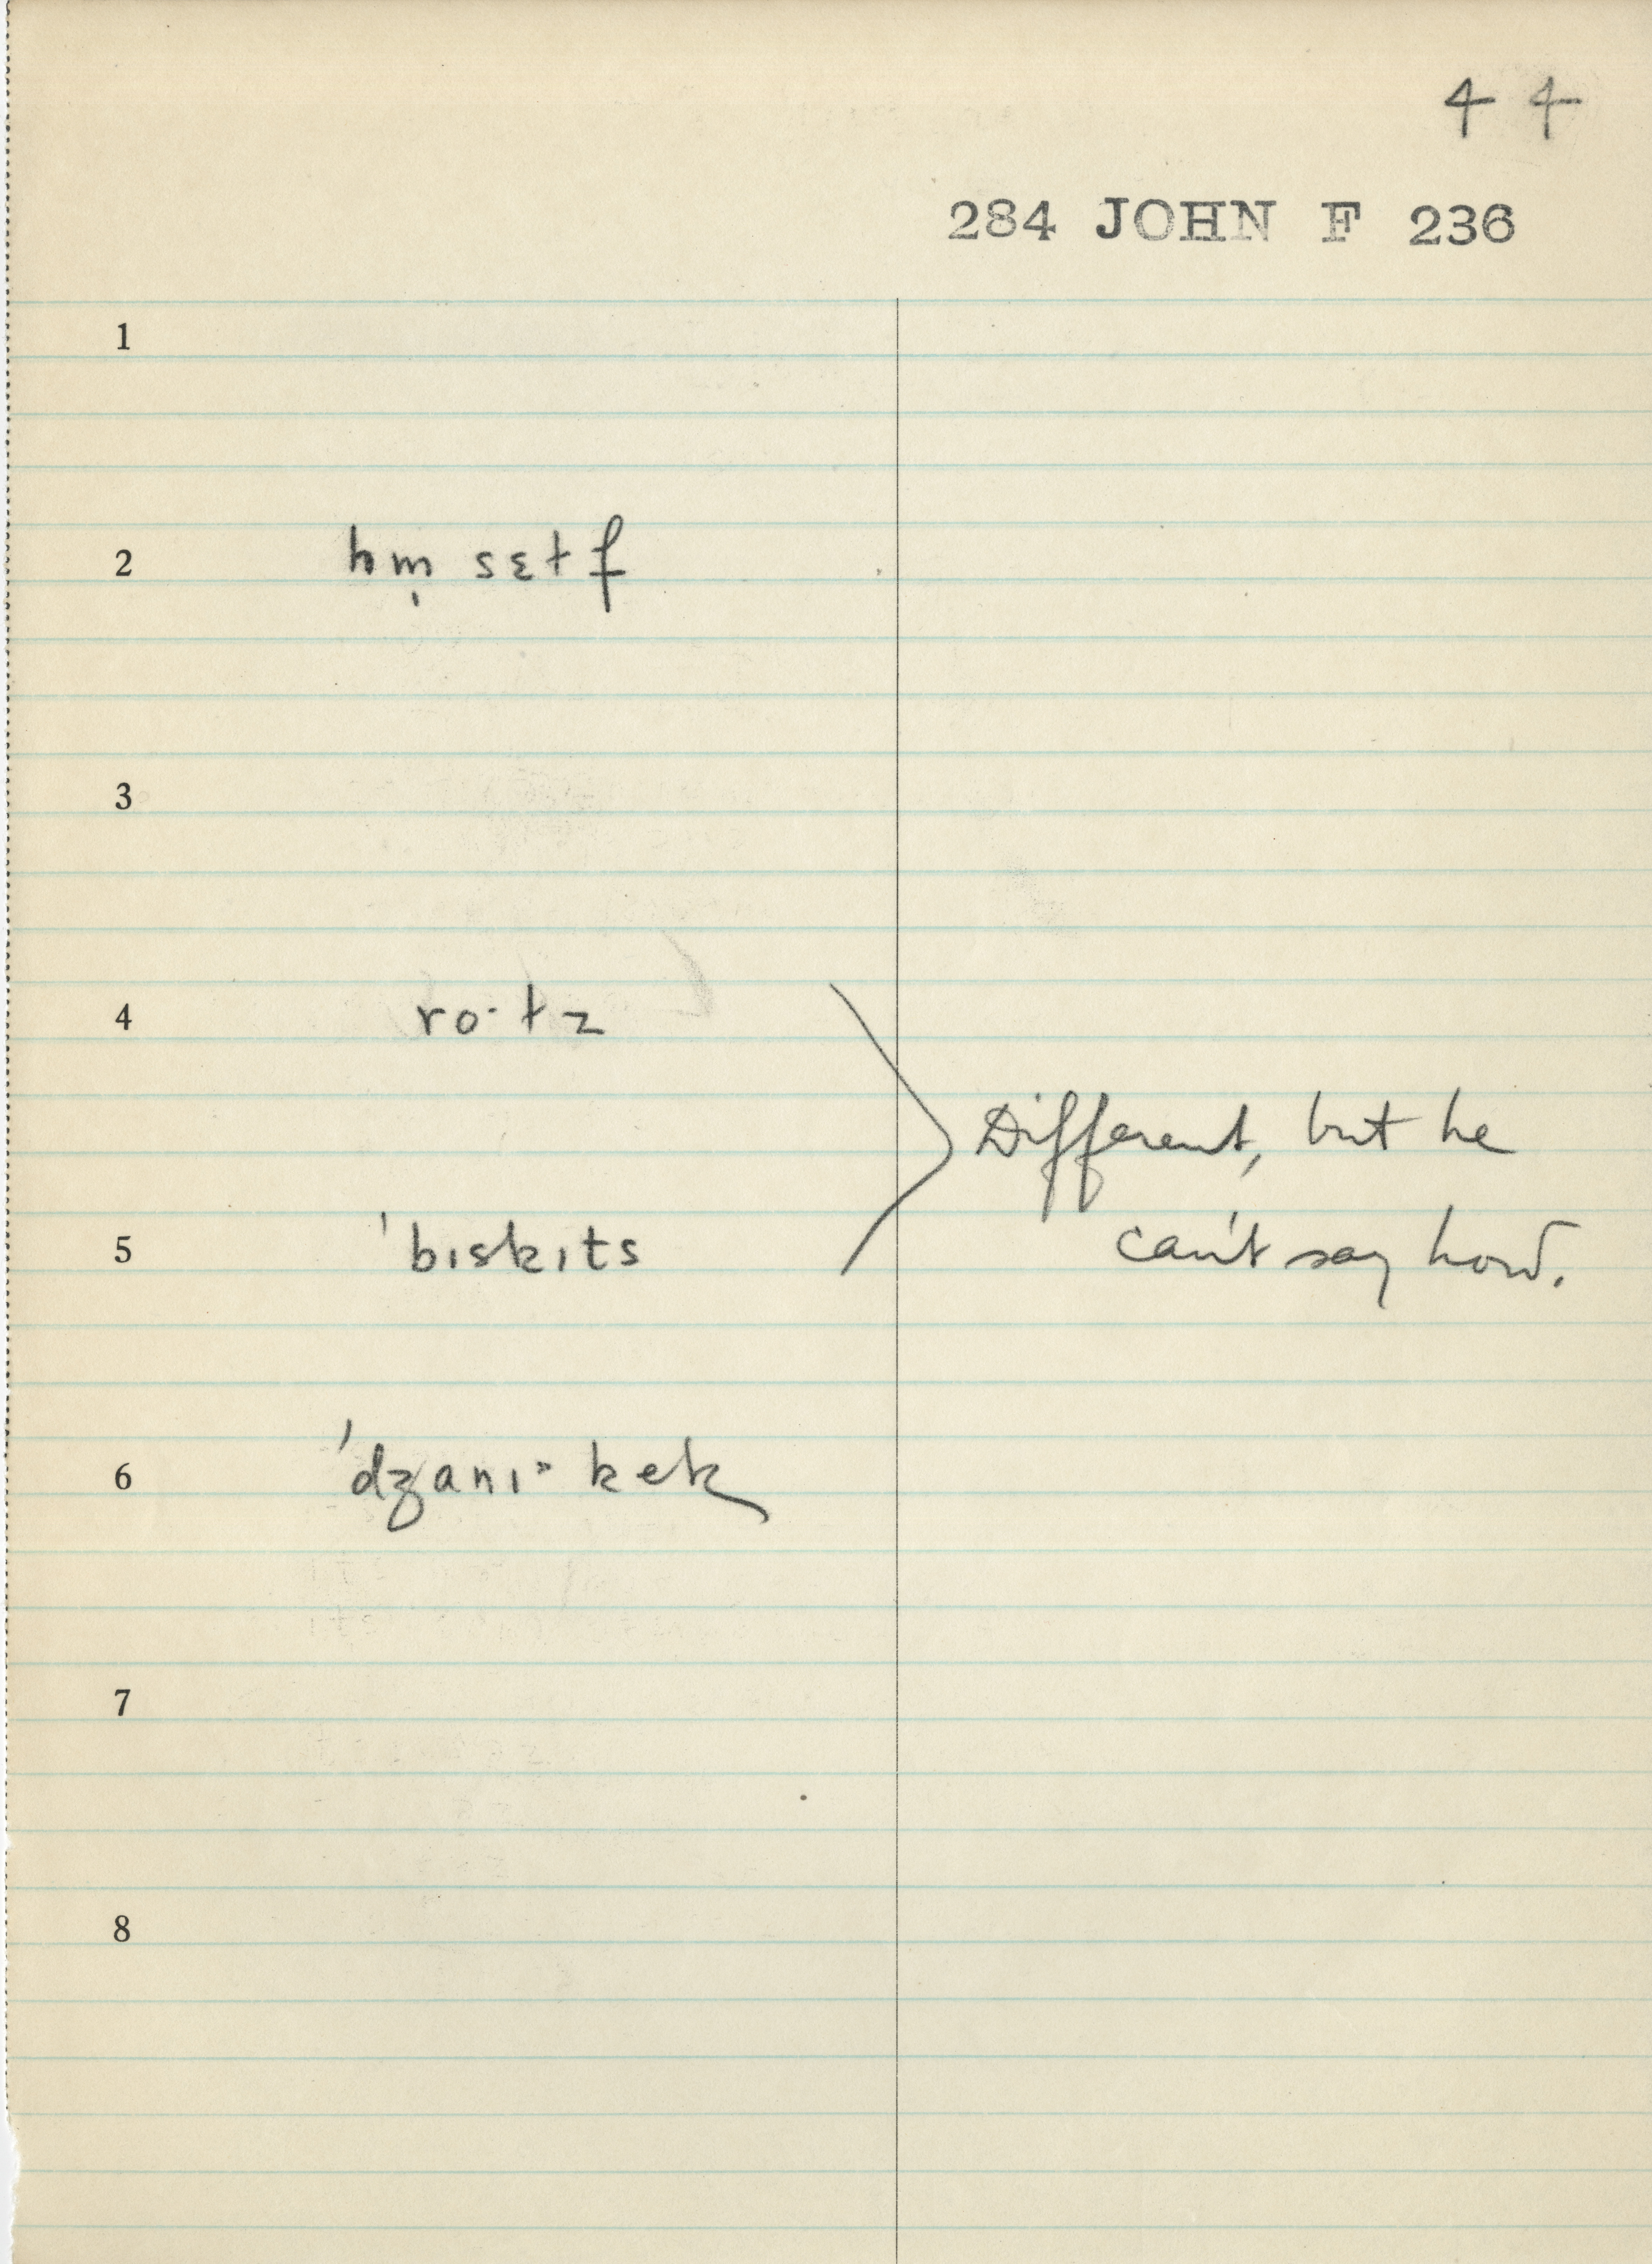 44
284 JOHN F 236
1
2 hm̩ sɛtf
3
4 ro·tz
Different, but he
5 'bɪskɪts
can't say how.
6 'dʒanɪ· kek
7
8